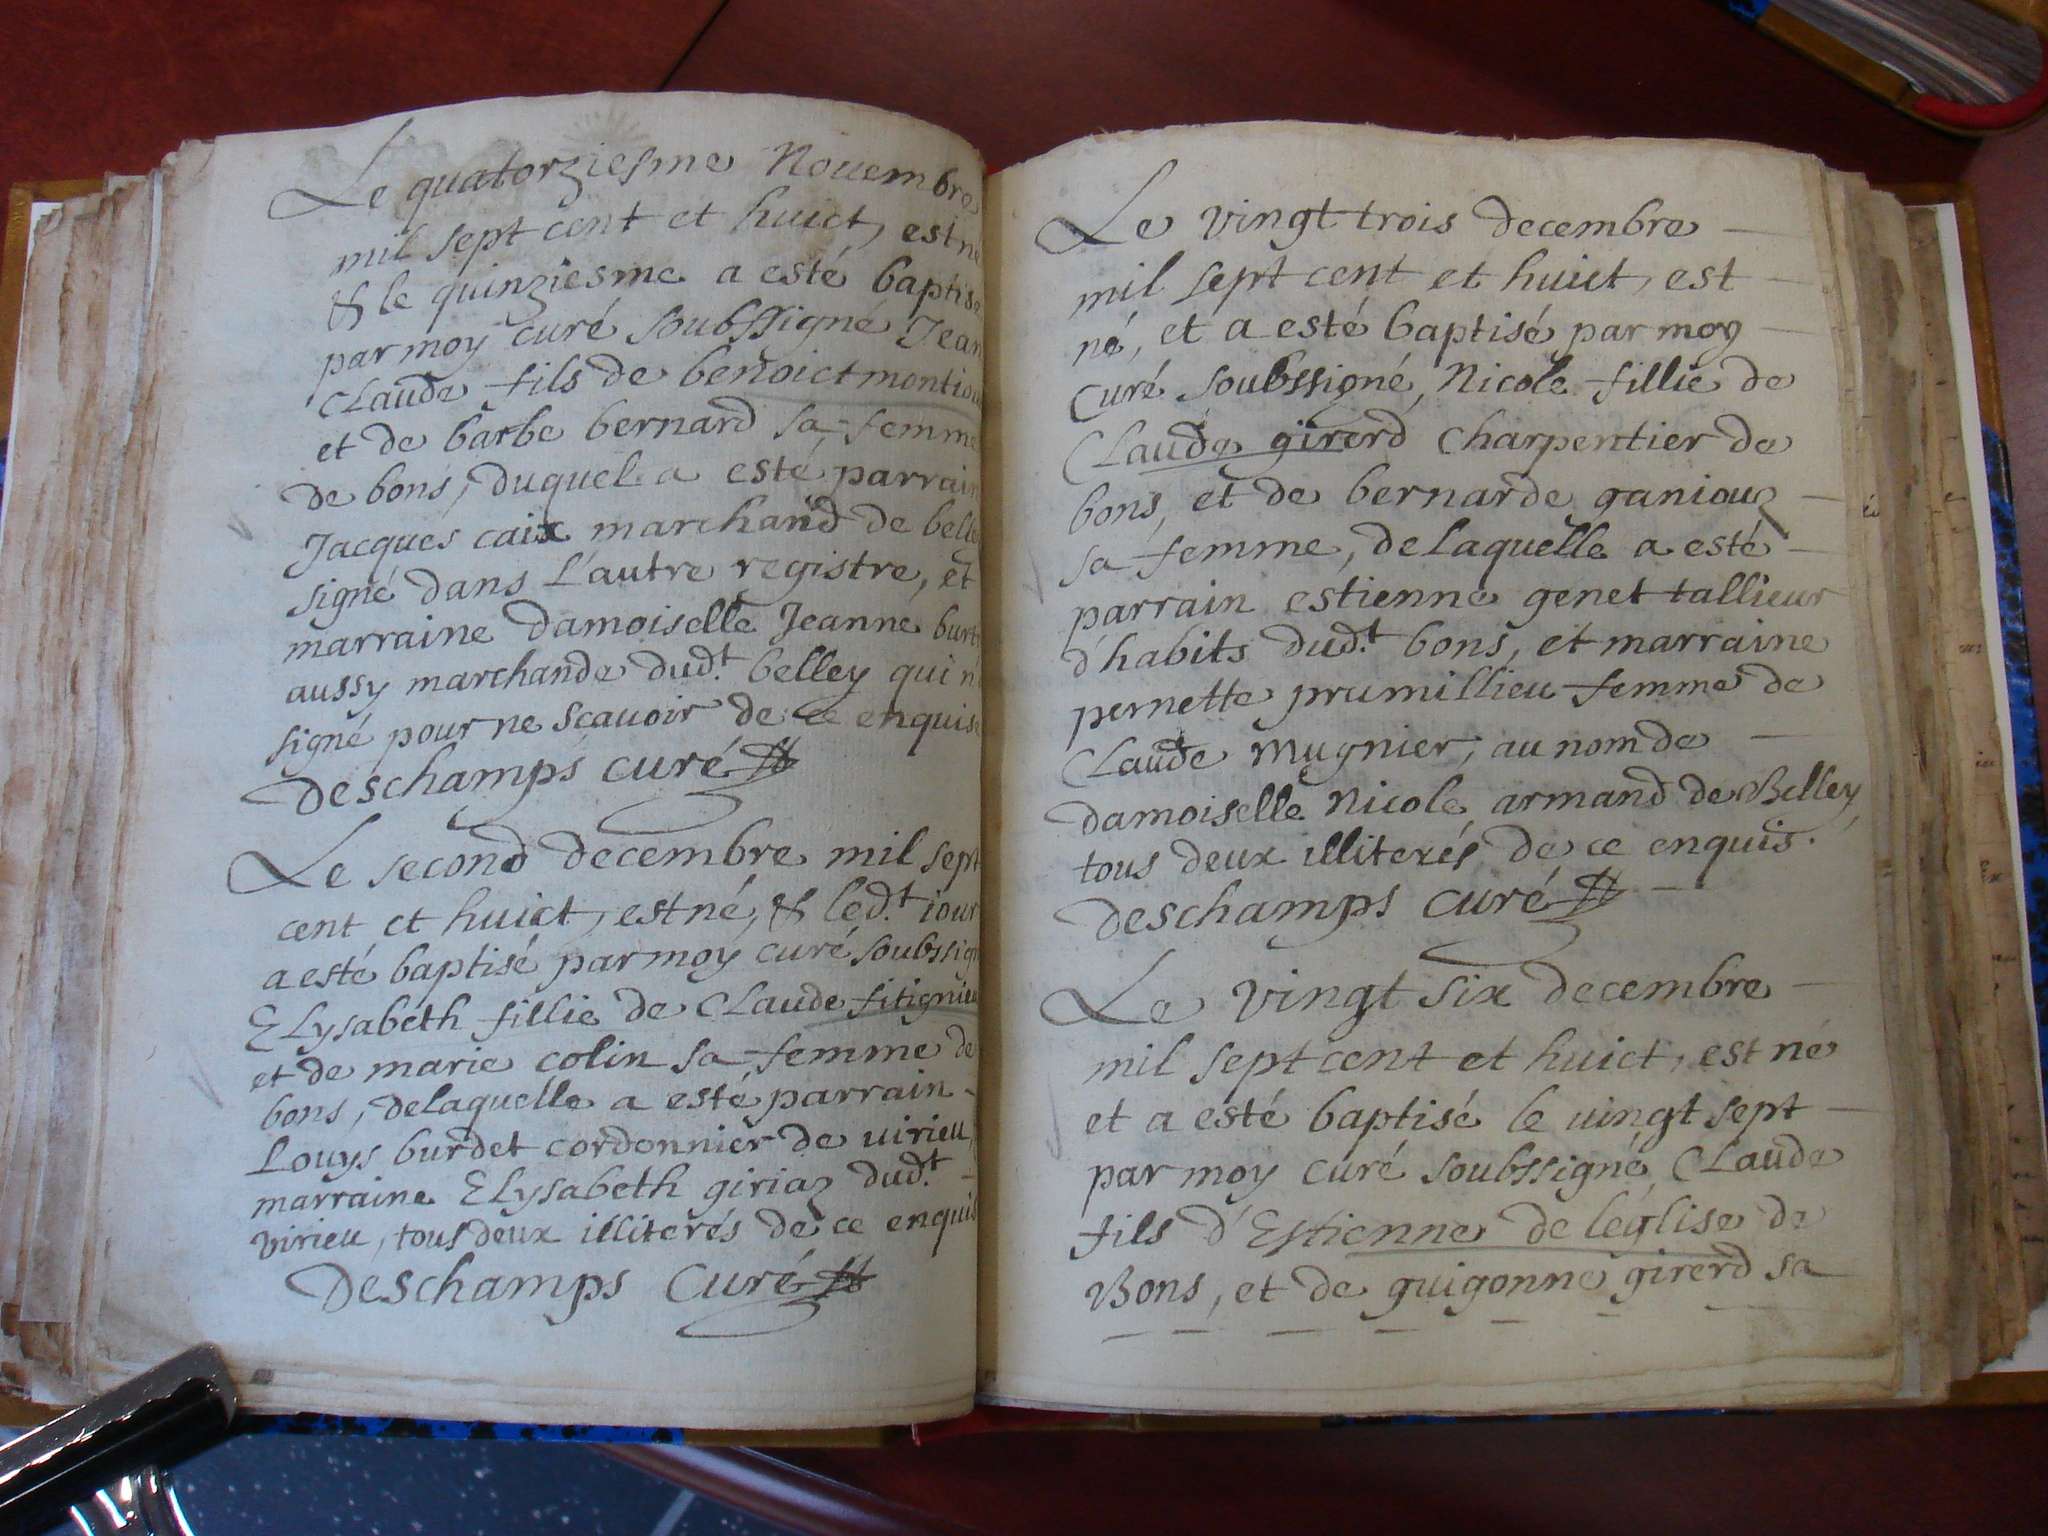 Le quatorziesme Nouembre
mil sept cent et huict, est né
& le quinziesme a esté baptisé
par moy curé soubssigné Jean
Claude fils de benoict
et de barbe bernard sa femme
de bons, duquel a esté parrain
Jacques caix marchand de belley
signé dans l'autre registre, et
marraine damoiselle Jeanne
aussy marchande dud.t belley qui n'a
signé pour ne scauoir de ce enquise
Deschamps curé
Le second decembre mil sept
cent et huict, est né, & led.t iour
a esté baptisé par moy curé soubssigné
Elysabeth fillie de Claude fitignieu
et de marie colin sa femme de
bons, delaquelle a esté parrain
Louys burdet cordonnier de virieu,
marraine Elysabeth giriaz dud.t
virieu, tous deux illiterés de ce enquis
Deschamps Curé
Le vingt trois decembre
mil sept cent et huict, est
né, et a esté baptisé par moy
Curé soubssigné, Nicole fillie de
Claude girerd Charpentier de
bons, et de bernarde ganiouz
sa femme, delaquelle a esté
parrain estienne genet tallieur
d'habits dud.t bons, et marraine
pernette prumillieu femme de
Claude Mugnier, au nom de
damoiselle Nicole armand de Belley,
tous deux illiterés de ce enquis.
Deschamps curé
Le vingt six decembre
mil sept cent et huict, est né
et a esté baptisé le uingt sept
par moy curé soubssigné, Claude
fils d'Estienne de léglise de
Bons, et de guigonne girerd sa